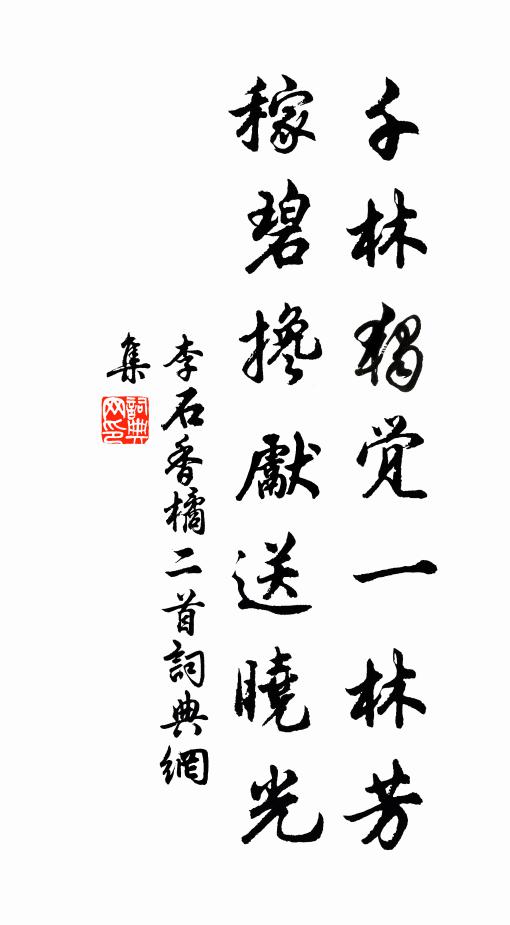 千林獨觉一林芳
稼碧搀獻送曉光
李石香橘二首詞典網
集
詞典网印